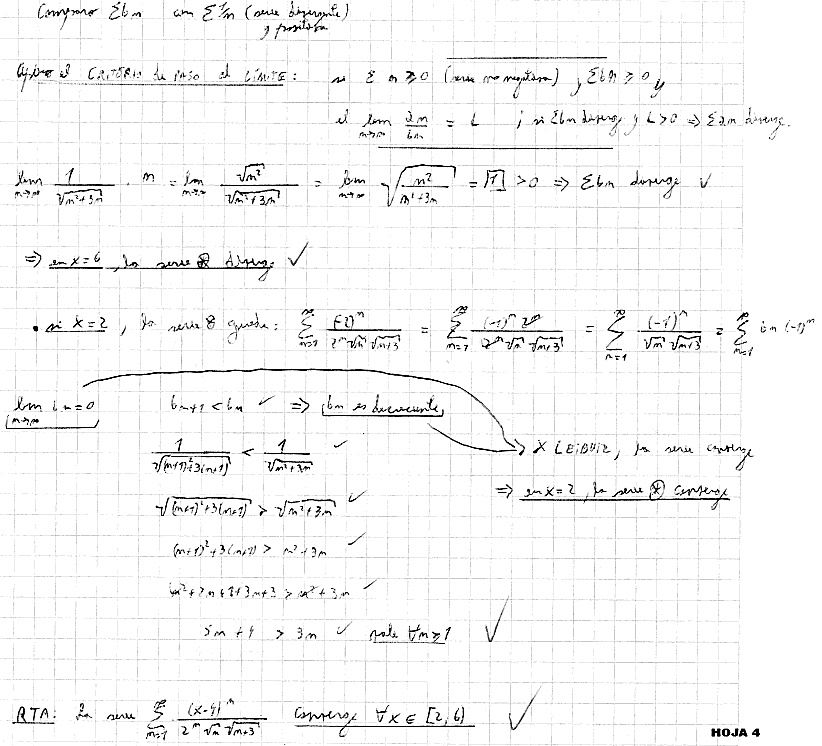 Comparo Σbn con Σ1/n (serie divergente)
y positiva
Aplico el CRITERIO de PASO al LÍMITE: si Σ an ≥ 0 (serie no negativa) y Σbn ≥ 0 y
el lim n→∞ an/bn = L ; si Σbn diverge y L>0 ⇒ Σan diverge.
lim n→∞ 1/√(n²+3n) · n = lim n→∞ √n²/√(n²+3n) = lim n→∞ √(n²/(n²+3n)) = √1 > 0 ⇒ Σbn diverge ✓
⇒ en x=6, la serie ⊛ diverge ✓
• si x=2, la serie ⊛ queda: ∞Σn=1 (-2)^n/(2^n √n √n+3) = ∞Σn=1 (-1)^n 2^n/(2^n √n √n+3) = ∞Σn=1 (-1)^n/(√n √n+3) = ∞Σn=1 bn (-1)^n
lim n→∞ bn = 0 bn+1 < bn ✓ ⇒ bn es decreciente
1/√((n+1)²+3(n+1)) < 1/√(n²+3n) ✓ X LEIBNIZ, la serie converge
⇒ en x=2, la serie ⊛ converge
√((n+1)²+3(n+1)) > √(n²+3n) ✓
(n+1)²+3(n+1) > n²+3n ✓
n²+2n+1+3n+3 > n²+3n ✓
5n+4 > 3n ✓ vale ∀n≥1 ✓
RTA: La serie ∞Σn=1 (x-4)^n/(2^n √n √n+3) converge ∀x ∈ [2,6) ✓
HOJA 4